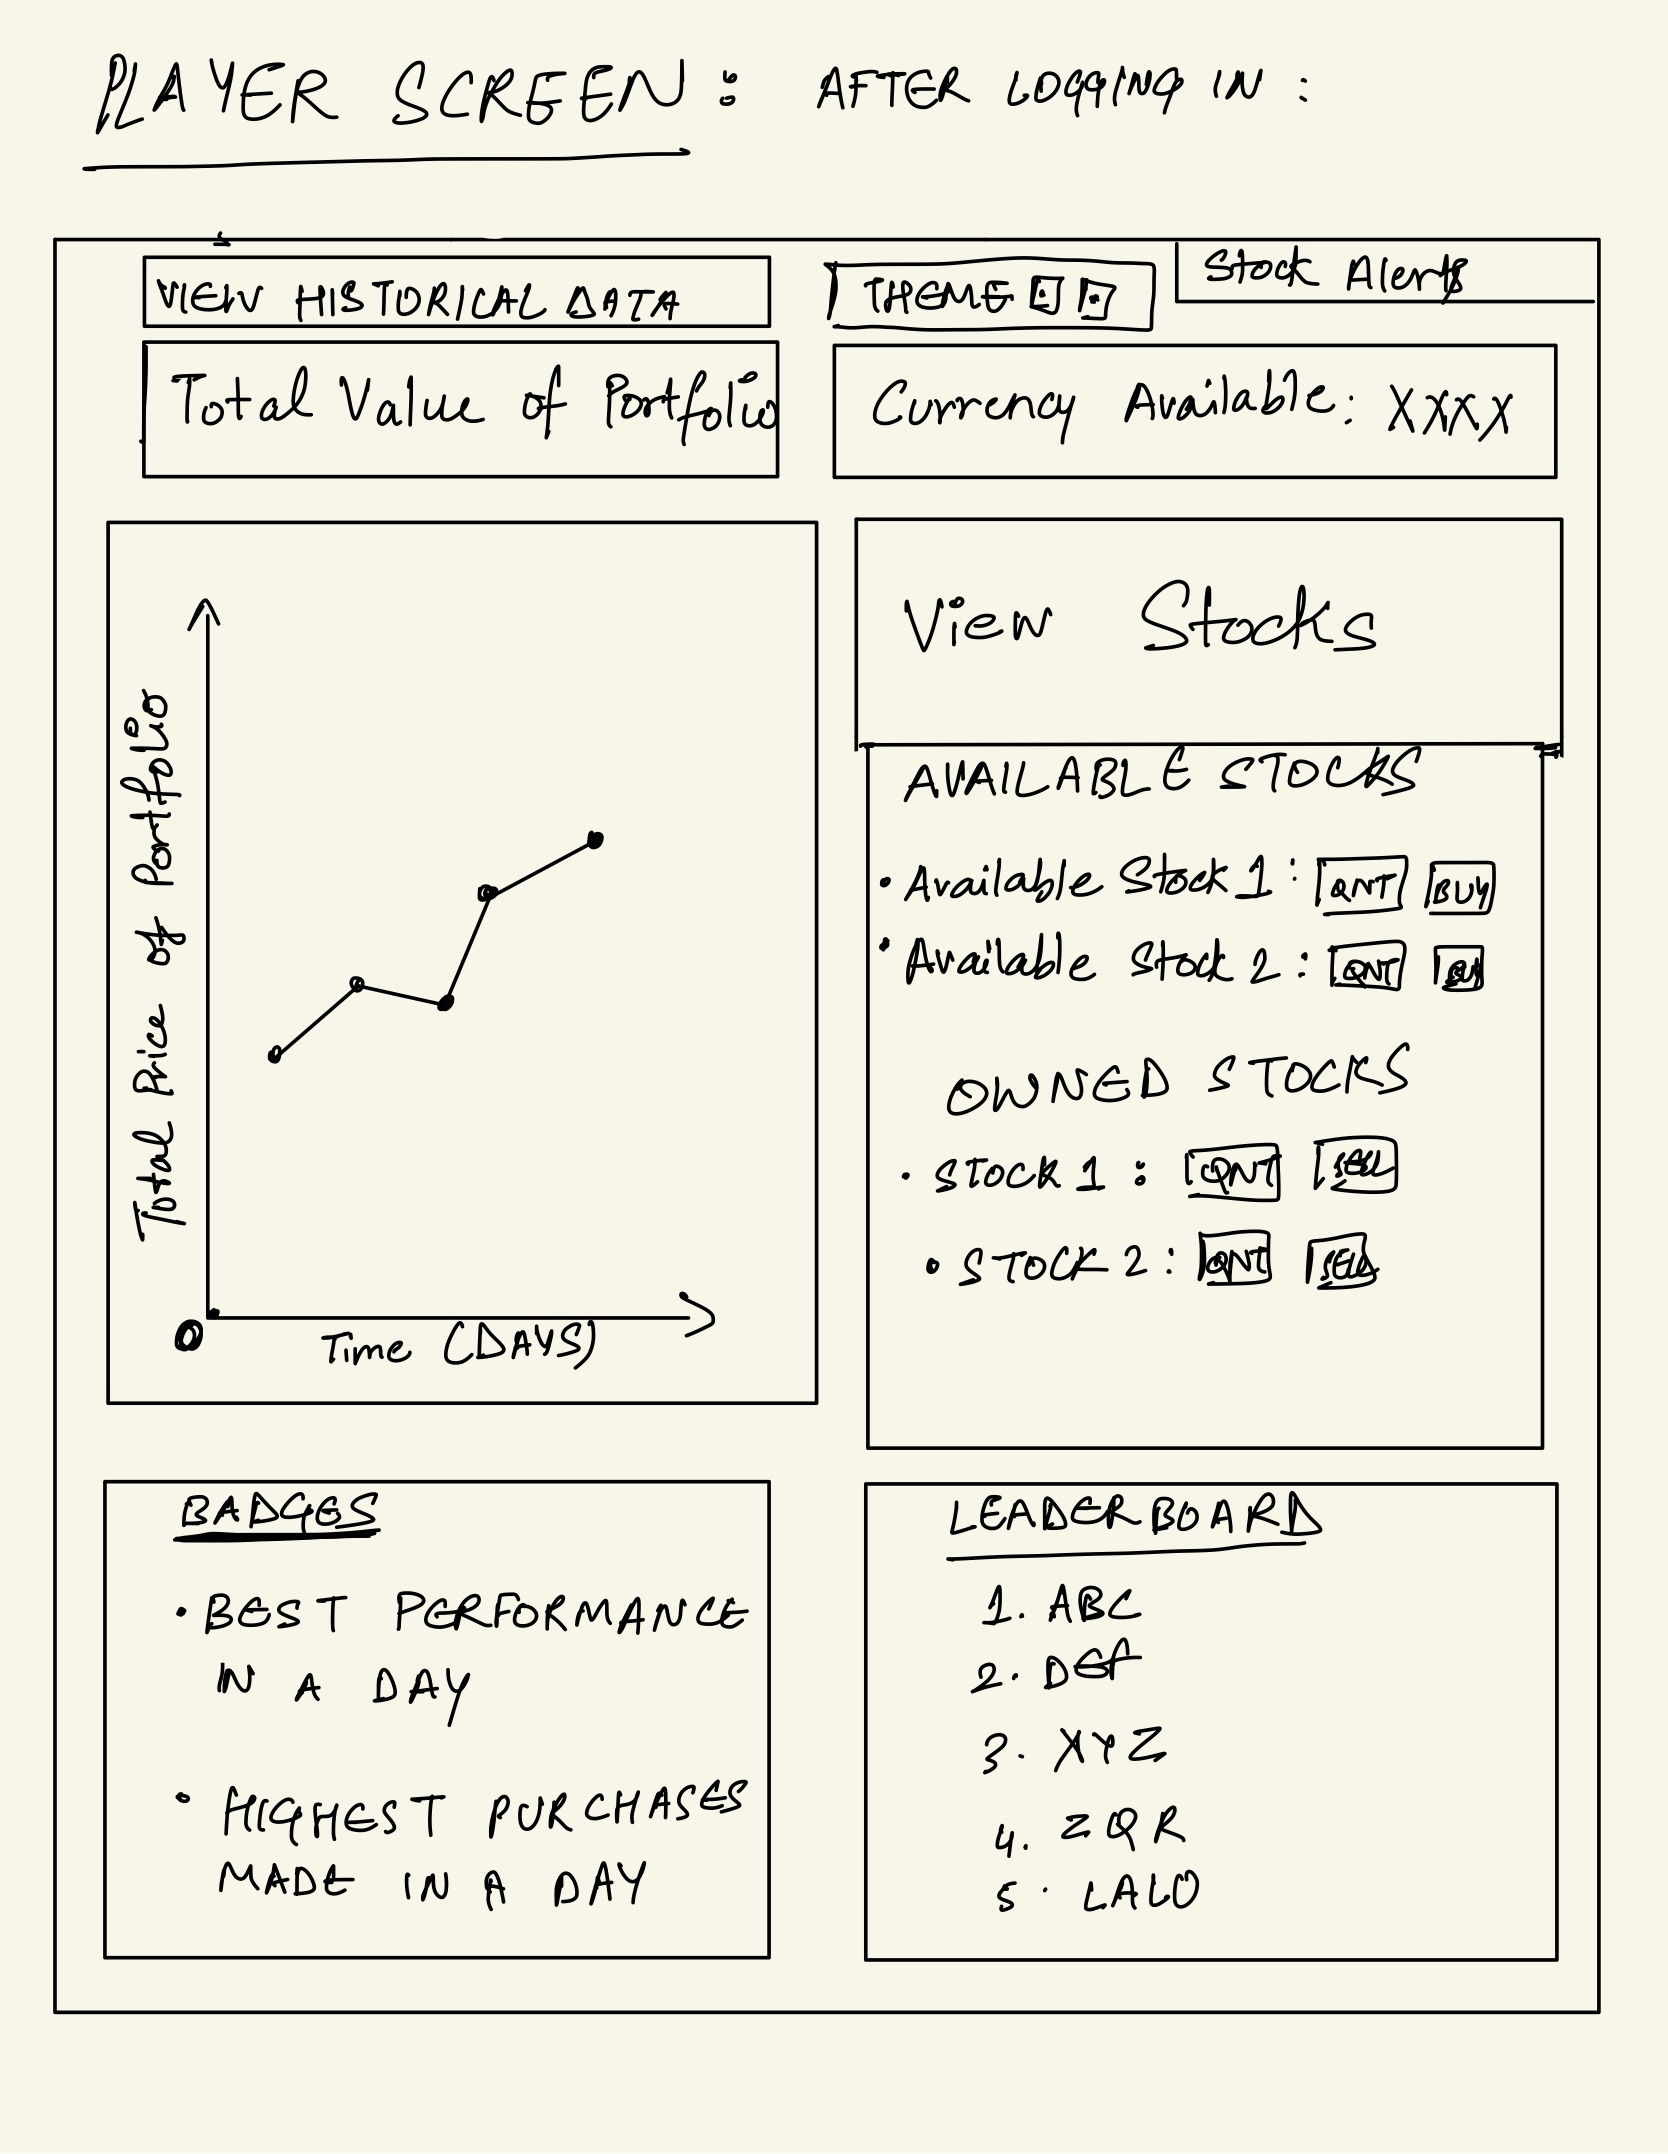 PLAYER SCREEN : AFTER LOGGING IN :
VIEW HISTORICAL DATA
THEME
Stock Alerts
Total Value of Portfolio
Currency Available: XXXX
Total Price of Portfolio
0
Time (DAYS)
View Stocks
AVAILABLE STOCKS
• Available Stock 1 : QNT BUY
• Available Stock 2 : QNT BUY
OWNED STOCKS
• STOCK 1 : QNT SELL
• STOCK 2 : QNT SELL
BADGES
• BEST PERFORMANCE
IN A DAY
• HIGHEST PURCHASES
MADE IN A DAY
LEADERBOARD
1. ABC
2. DEF
3. XYZ
4. ZQR
5. LALO